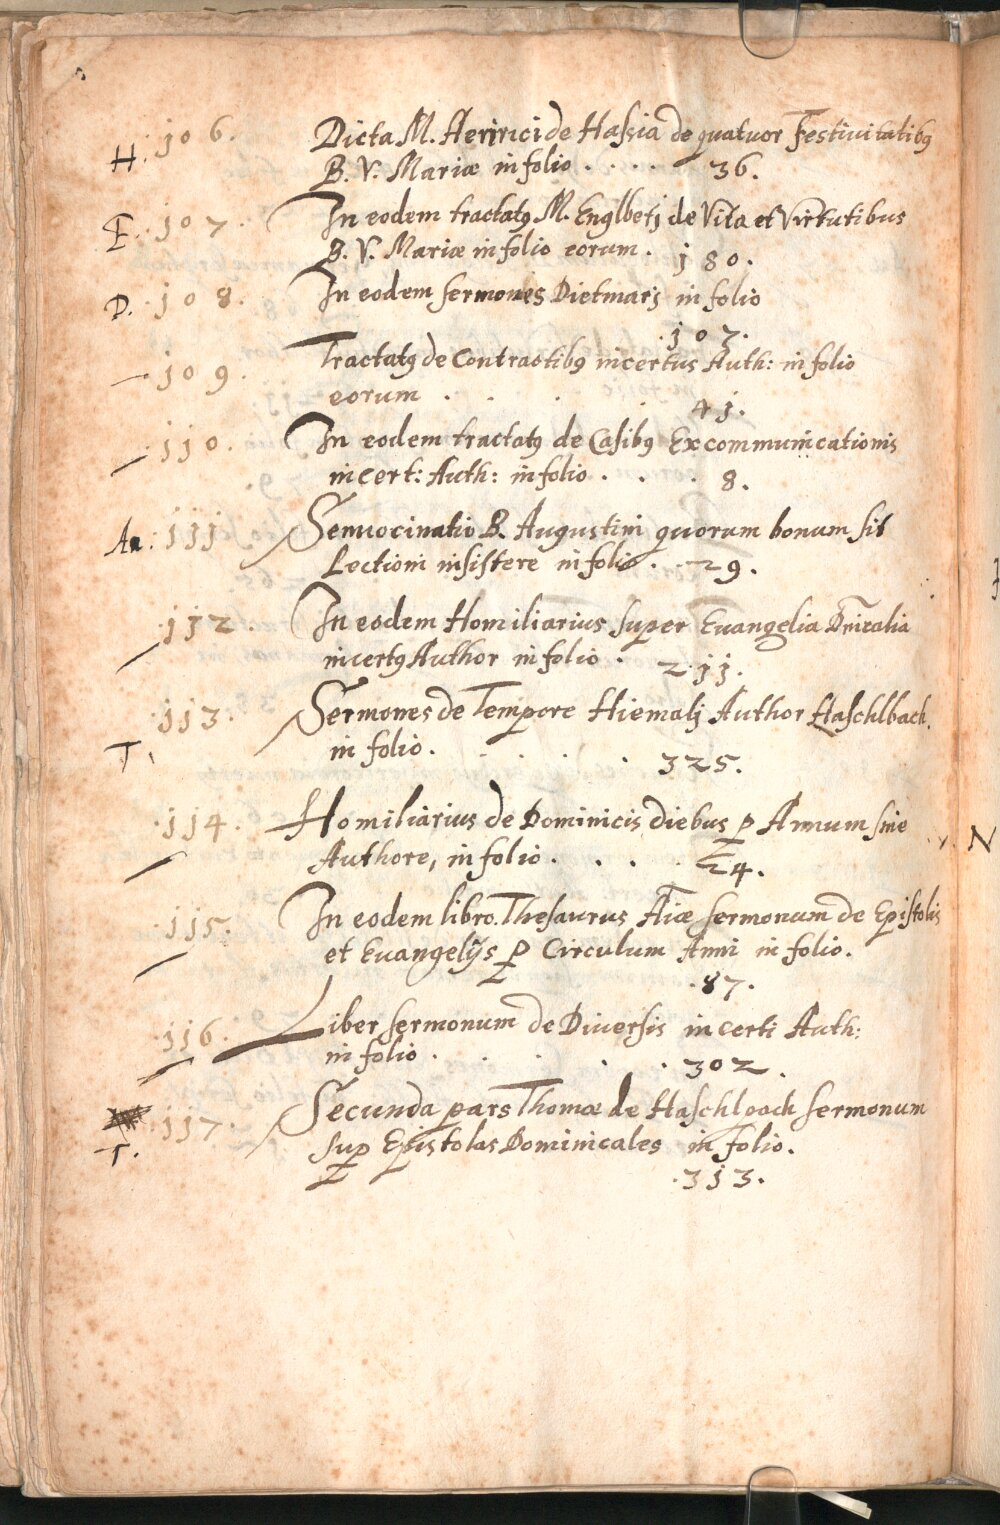 H. 106. Dicta M. Henrici de Haßia de quatuor Festiuitatibꝰ
B. V. Mariæ in folio . . . . 36.
E. 107. In eodem tractatꝰ M. Englbetj de Vita et Virtutibus
B. V. Mariæ in folio eorum . 180.
D. 108. In eodem sermones Dietmarj in folio
.107.
109. Tractatꝰ de Contractibꝰ incertus Auth: in folio
eorum . . . . 41.
110. In eodem tractatꝰ de Casibꝰ Excommunicationis
incert: Auth: in folio . . . 8.
Au. 111. Sermocinatio B. Augustini quorum bonum sit
Lectioni insistere in folio . . 29.
112. In eodem Homiliarius super Euangelia Dnicalia
incertꝰ Author in folio . 211.
113. Sermones de Tempore Hiemalj Author Haschlbach.
T. in folio . . . . . 325.
114. Homiliarius de Dominicis diebus ꝑ Annum sine
Authore, in folio . . . . 24.
115. In eodem libro. Thesaurus Aiæ sermonum de Epistolis
et Euangelijs ꝑ Circulum Anni in folio.
.87.
116. Liber sermonum de Diuersis incerti Auth:
in folio . . . . . 302.
117. Secunda pars Thomæ de Haschlbach sermonum
T. suꝑ Epistolas Dominicales in folio.
.313.
N